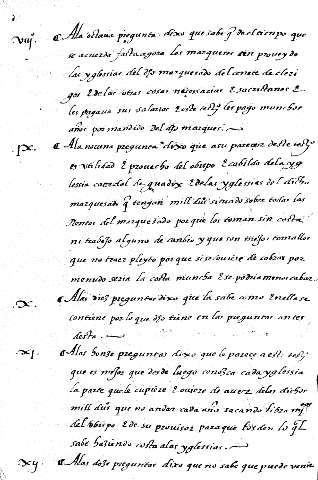 viijº A la octava pregunta dixo que sabe q̃ del tienpo que
se acuerda fasta agora los marqueses an proveydo
las yglesias del dho marquesado del cenete de cleri
gos e de las otras cosas neçesarias e sacristanes e
les pagava sus salarios e este testigo les pago munchos
años por mandado del dho marques.
IX. A la novena pregunta dixo que a su parecer deste testigo
es utilidad e provecho del obispo e cabildo de la y
glesia catedral de guadix e de las yglesias del dicho
marquesado q̃ tengan mill ds situados sobre todas las
Rentas del marquesado por que los toman sin costa
ni trabajo alguno de canbio y que son mejor
que no traer pleyto por que si se oviere de cobrar por
menudo seria la costa muncha e se podria menoscabar.
X. A las diez preguntas dixo que la sabe como en ella se
contiene por lo que dho tiene en las preguntas antes
desta.
XI. A las honze preguntas dixo que le parece a este tesº
que es mejor que desde luego conozca cada yglesia
la parte que le cupiere e oviere de aver de los dichos
mill ds que no andar cada año sacando libramiº
del obispo e de su provisor para que les den lo q̃l
sabe haziendo costa a las yglesias.
XIJ. A las doze preguntas dixo que no sabe que puede venir